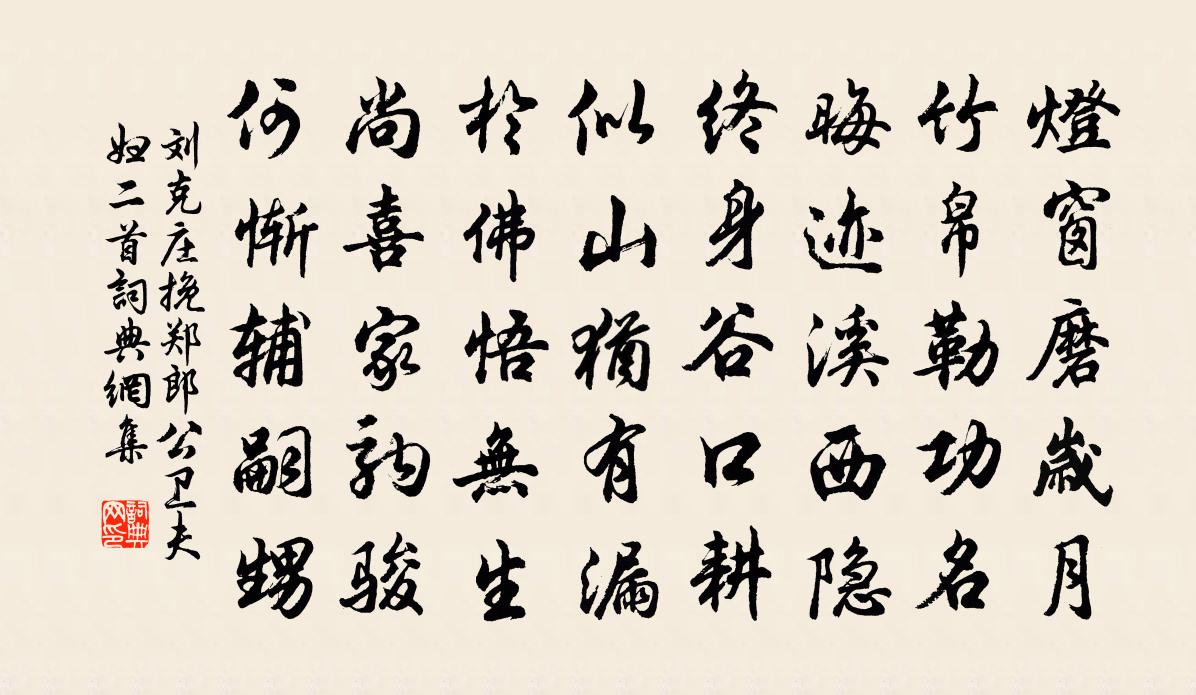 燈窗磨歲月
竹帛勒功名
晦迹溪西隐
终身谷口耕
似山猶有漏
於佛悟無生
尚喜家駒骏
何惭辅嗣甥
刘克庄挽郑郎公卫夫
妇二首詞典網集
詞典
网印